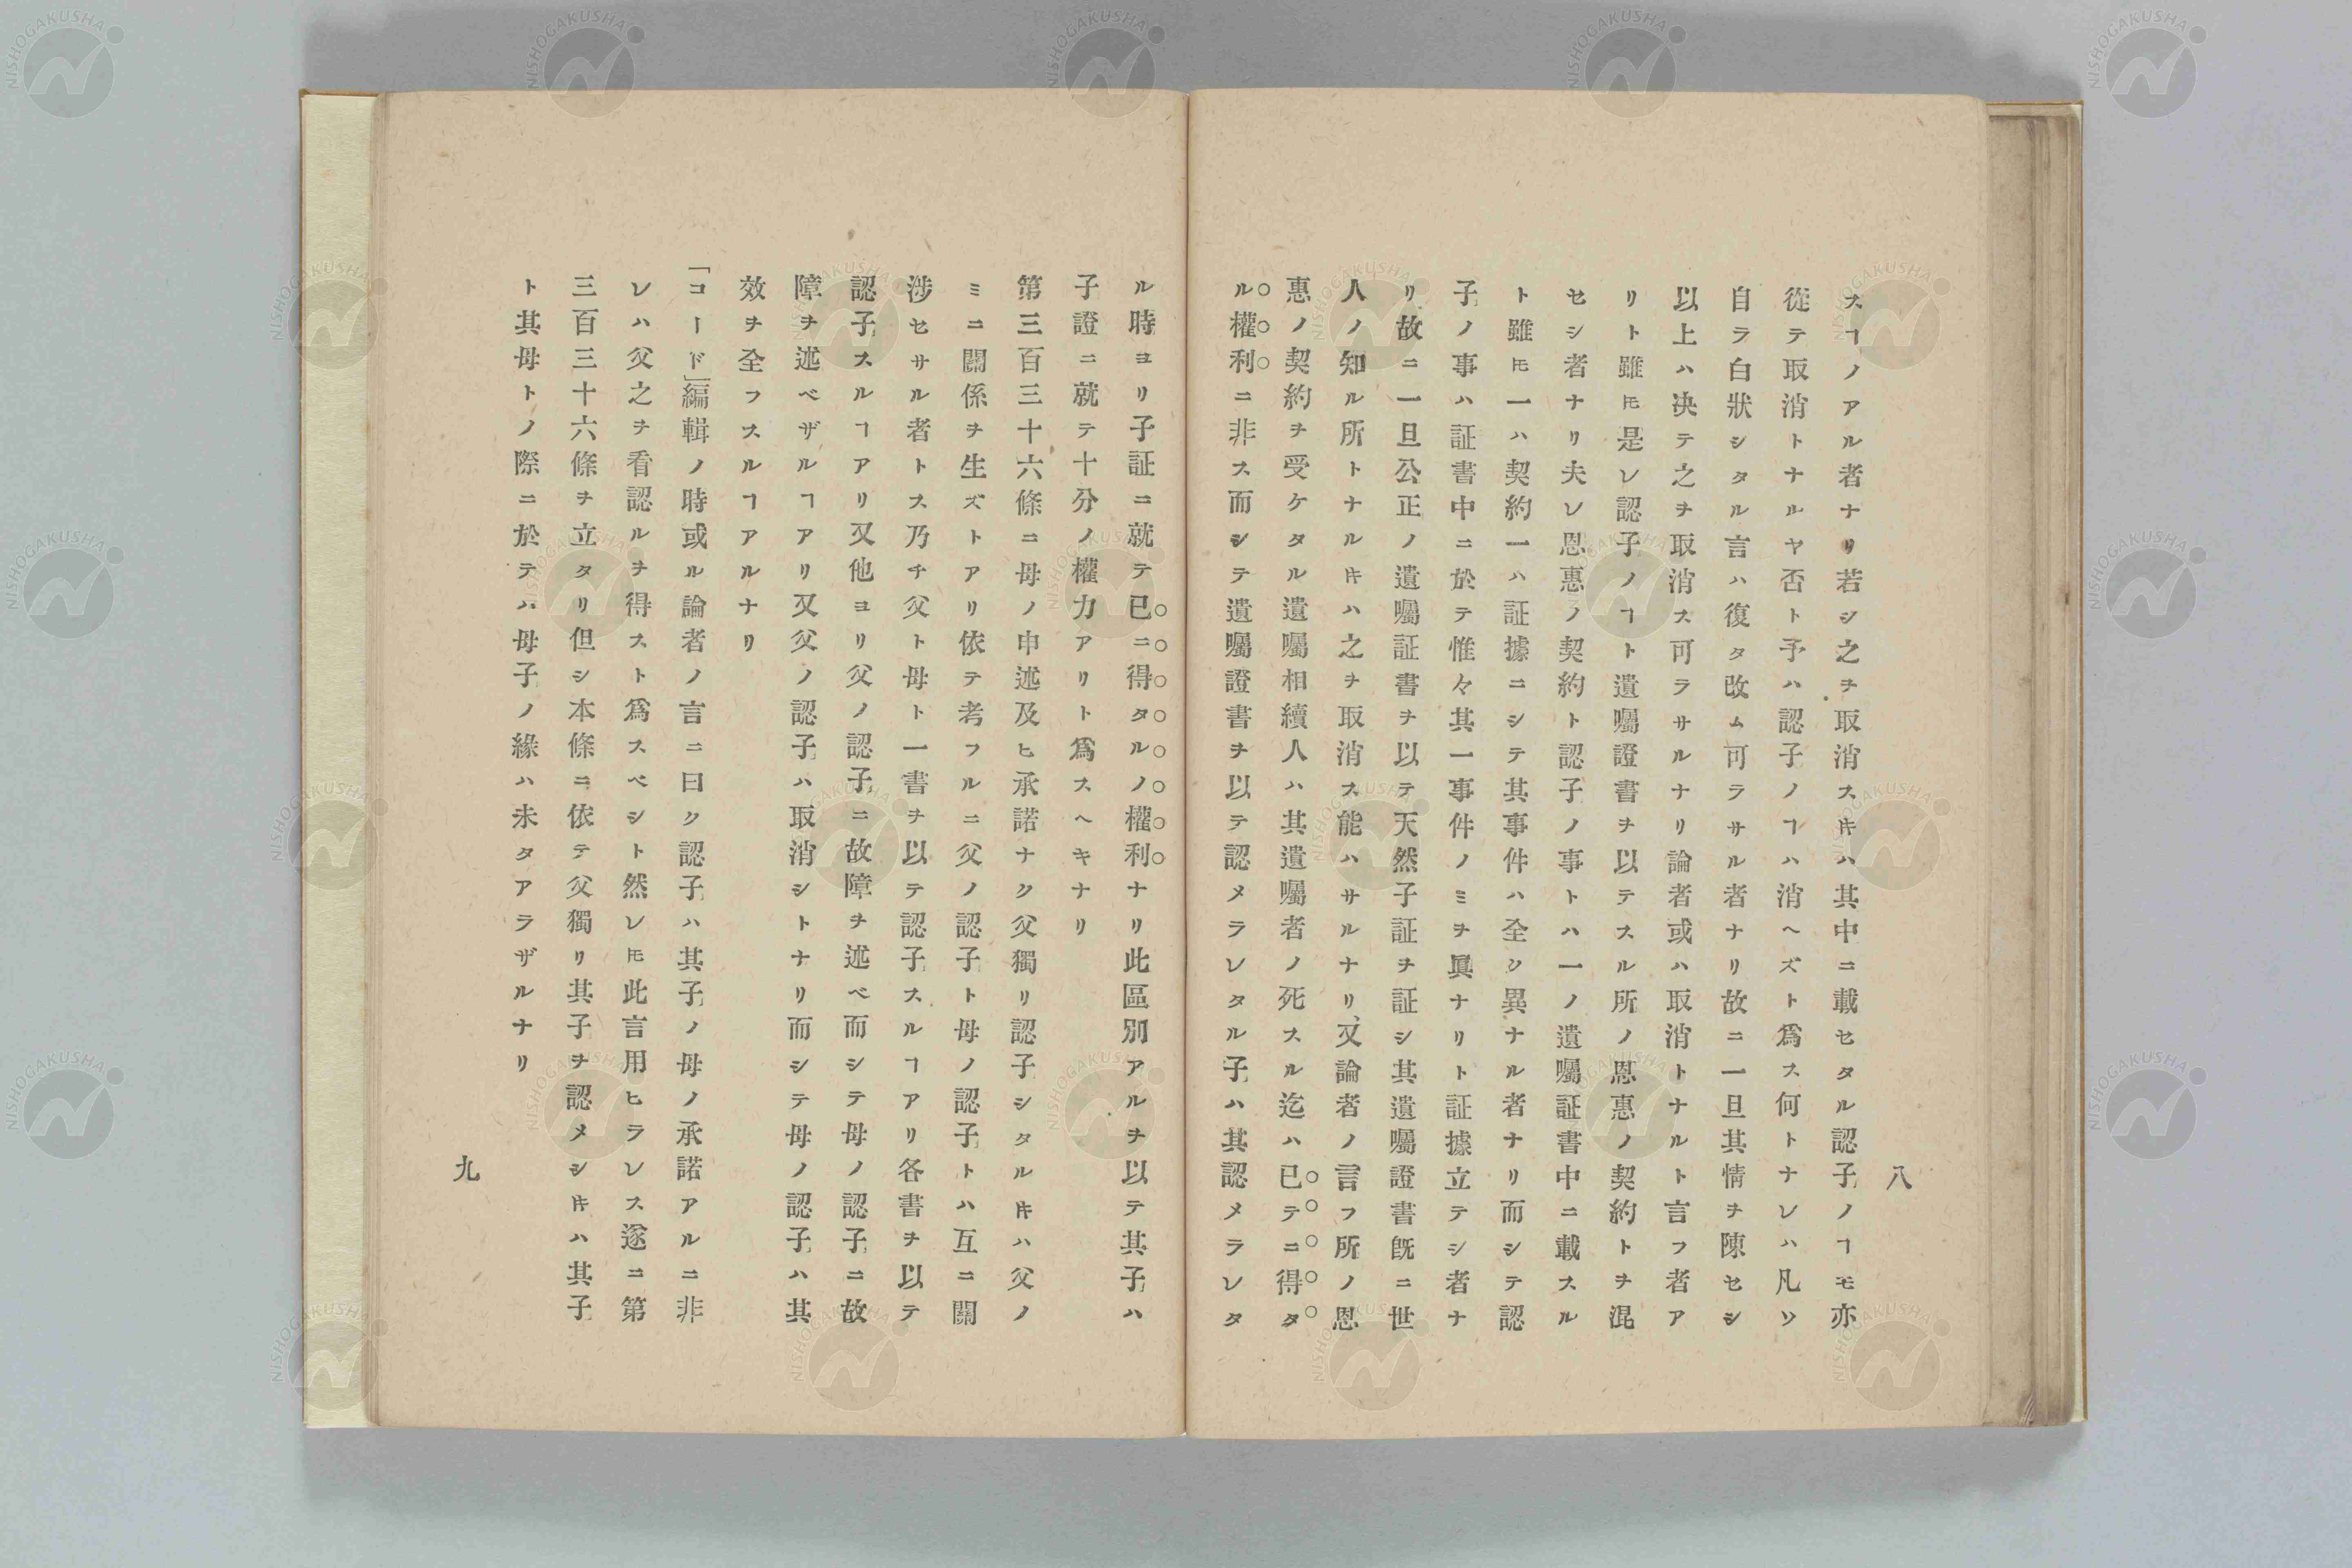 八
スヿノアル者ナリ若シ之ヲ取消スㇳキハ其中ニ載セタル認子ノヿモ亦
從テ取消トナルヤ否ト予ハ認子ノヿハ消ヘズト爲ス何トナレハ凡ソ
自ラ白狀シタル言ハ復タ改ム可ラサル者ナリ故ニ一旦其情ヲ陳セシ
以上ハ决テ之ヲ取消ス可ラサルナリ論者或ハ取消トナルト言フ者ア
リト雖𪜈是レ認子ノヿト遺囑證書ヲ以テスル所ノ恩惠ノ契約トヲ混
セシ者ナリ夫レ恩惠ノ契約ト認子ノ事トハ一ノ遺囑証書中ニ載スル
ト雖𪜈一ハ契約一ハ証據ニシテ其事件ハ全ク異ナル者ナリ而シテ認
子ノ事ハ証書中ニ於テ惟々其一事件ノミヲ眞ナリト証據立テシ者ナ
リ故ニ一旦公正ノ遺囑証書ヲ以テ天然子証ヲ証シ其遺囑證書旣ニ世
人ノ知ル所トナルㇳキハ之ヲ取消ス能ハサルナリ又論者ノ言フ所ノ恩
惠ノ契約ヲ受ケタル遺囑相續人ハ其遺囑者ノ死スル迄ハ已テニ得タ
ル權利ニ非ス而シテ遺囑證書ヲ以テ認メラレタル子ハ其認メラレタ
ル時ヨリ子証ニ就テ已ニ得タルノ權利ナリ此區別アルヲ以テ其子ハ
子證ニ就テ十分ノ權力アリト爲スヘキナリ
第三百三十六條ニ母ノ申述及ヒ承諾ナク父獨リ認子シタルㇳキハ父ノ
ミニ關係ヲ生ズトアリ依テ考フルニ父ノ認子ト母ノ認子トハ互ニ關
涉セサル者トス乃チ父ト母ト一書ヲ以テ認子スルヿアリ各書ヲ以テ
認子スルヿアリ又他ヨリ父ノ認子ニ故障ヲ述べ而シテ母ノ認子ニ故
障ヲ述ベザルヿアリ又父ノ認子ハ取消シトナリ而シテ母ノ認子ハ其
效ヲ全フスルヿアルナリ
「コード」編輯ノ時或ル論者ノ言ニ曰ク認子ハ其子ノ母ノ承諾アルニ非
レハ父之ヲ看認ルヲ得スト爲スベシト然レ𪜈此言用ヒラレス遂ニ第
三百三十六條ヲ立タリ但シ本條ニ依テ父獨リ其子ヲ認メシㇳキハ其子
ト其母トノ際ニ於テハ母子ノ緣ハ未タアラザルナリ
九